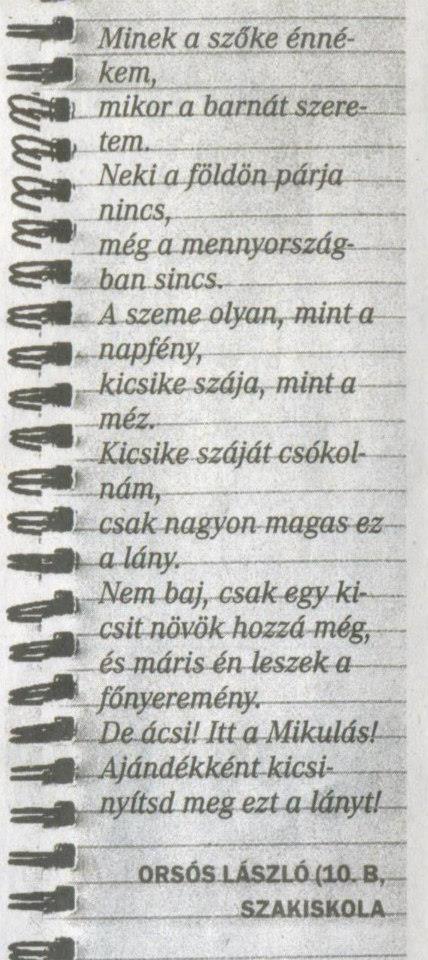 Minek a szőke énné-
kem,
mikor a barnát szere-
tem.
Neki a földön párja
nincs,
még a mennyország-
ban sincs.
A szeme olyan, mint a
napfény,
kicsike szája, mint a
méz.
Kicsike száját csókol-
nám,
csak nagyon magas ez
a lány.
Nem baj, csak egy ki-
csit növök hozzá még,
és máris én leszek a
főnyeremény.
De ácsi! Itt a Mikulás!
Ajándékként kicsi-
nyítsd meg ezt a lányt!
ORSÓS LÁSZLÓ (10. B,
SZAKISKOLA